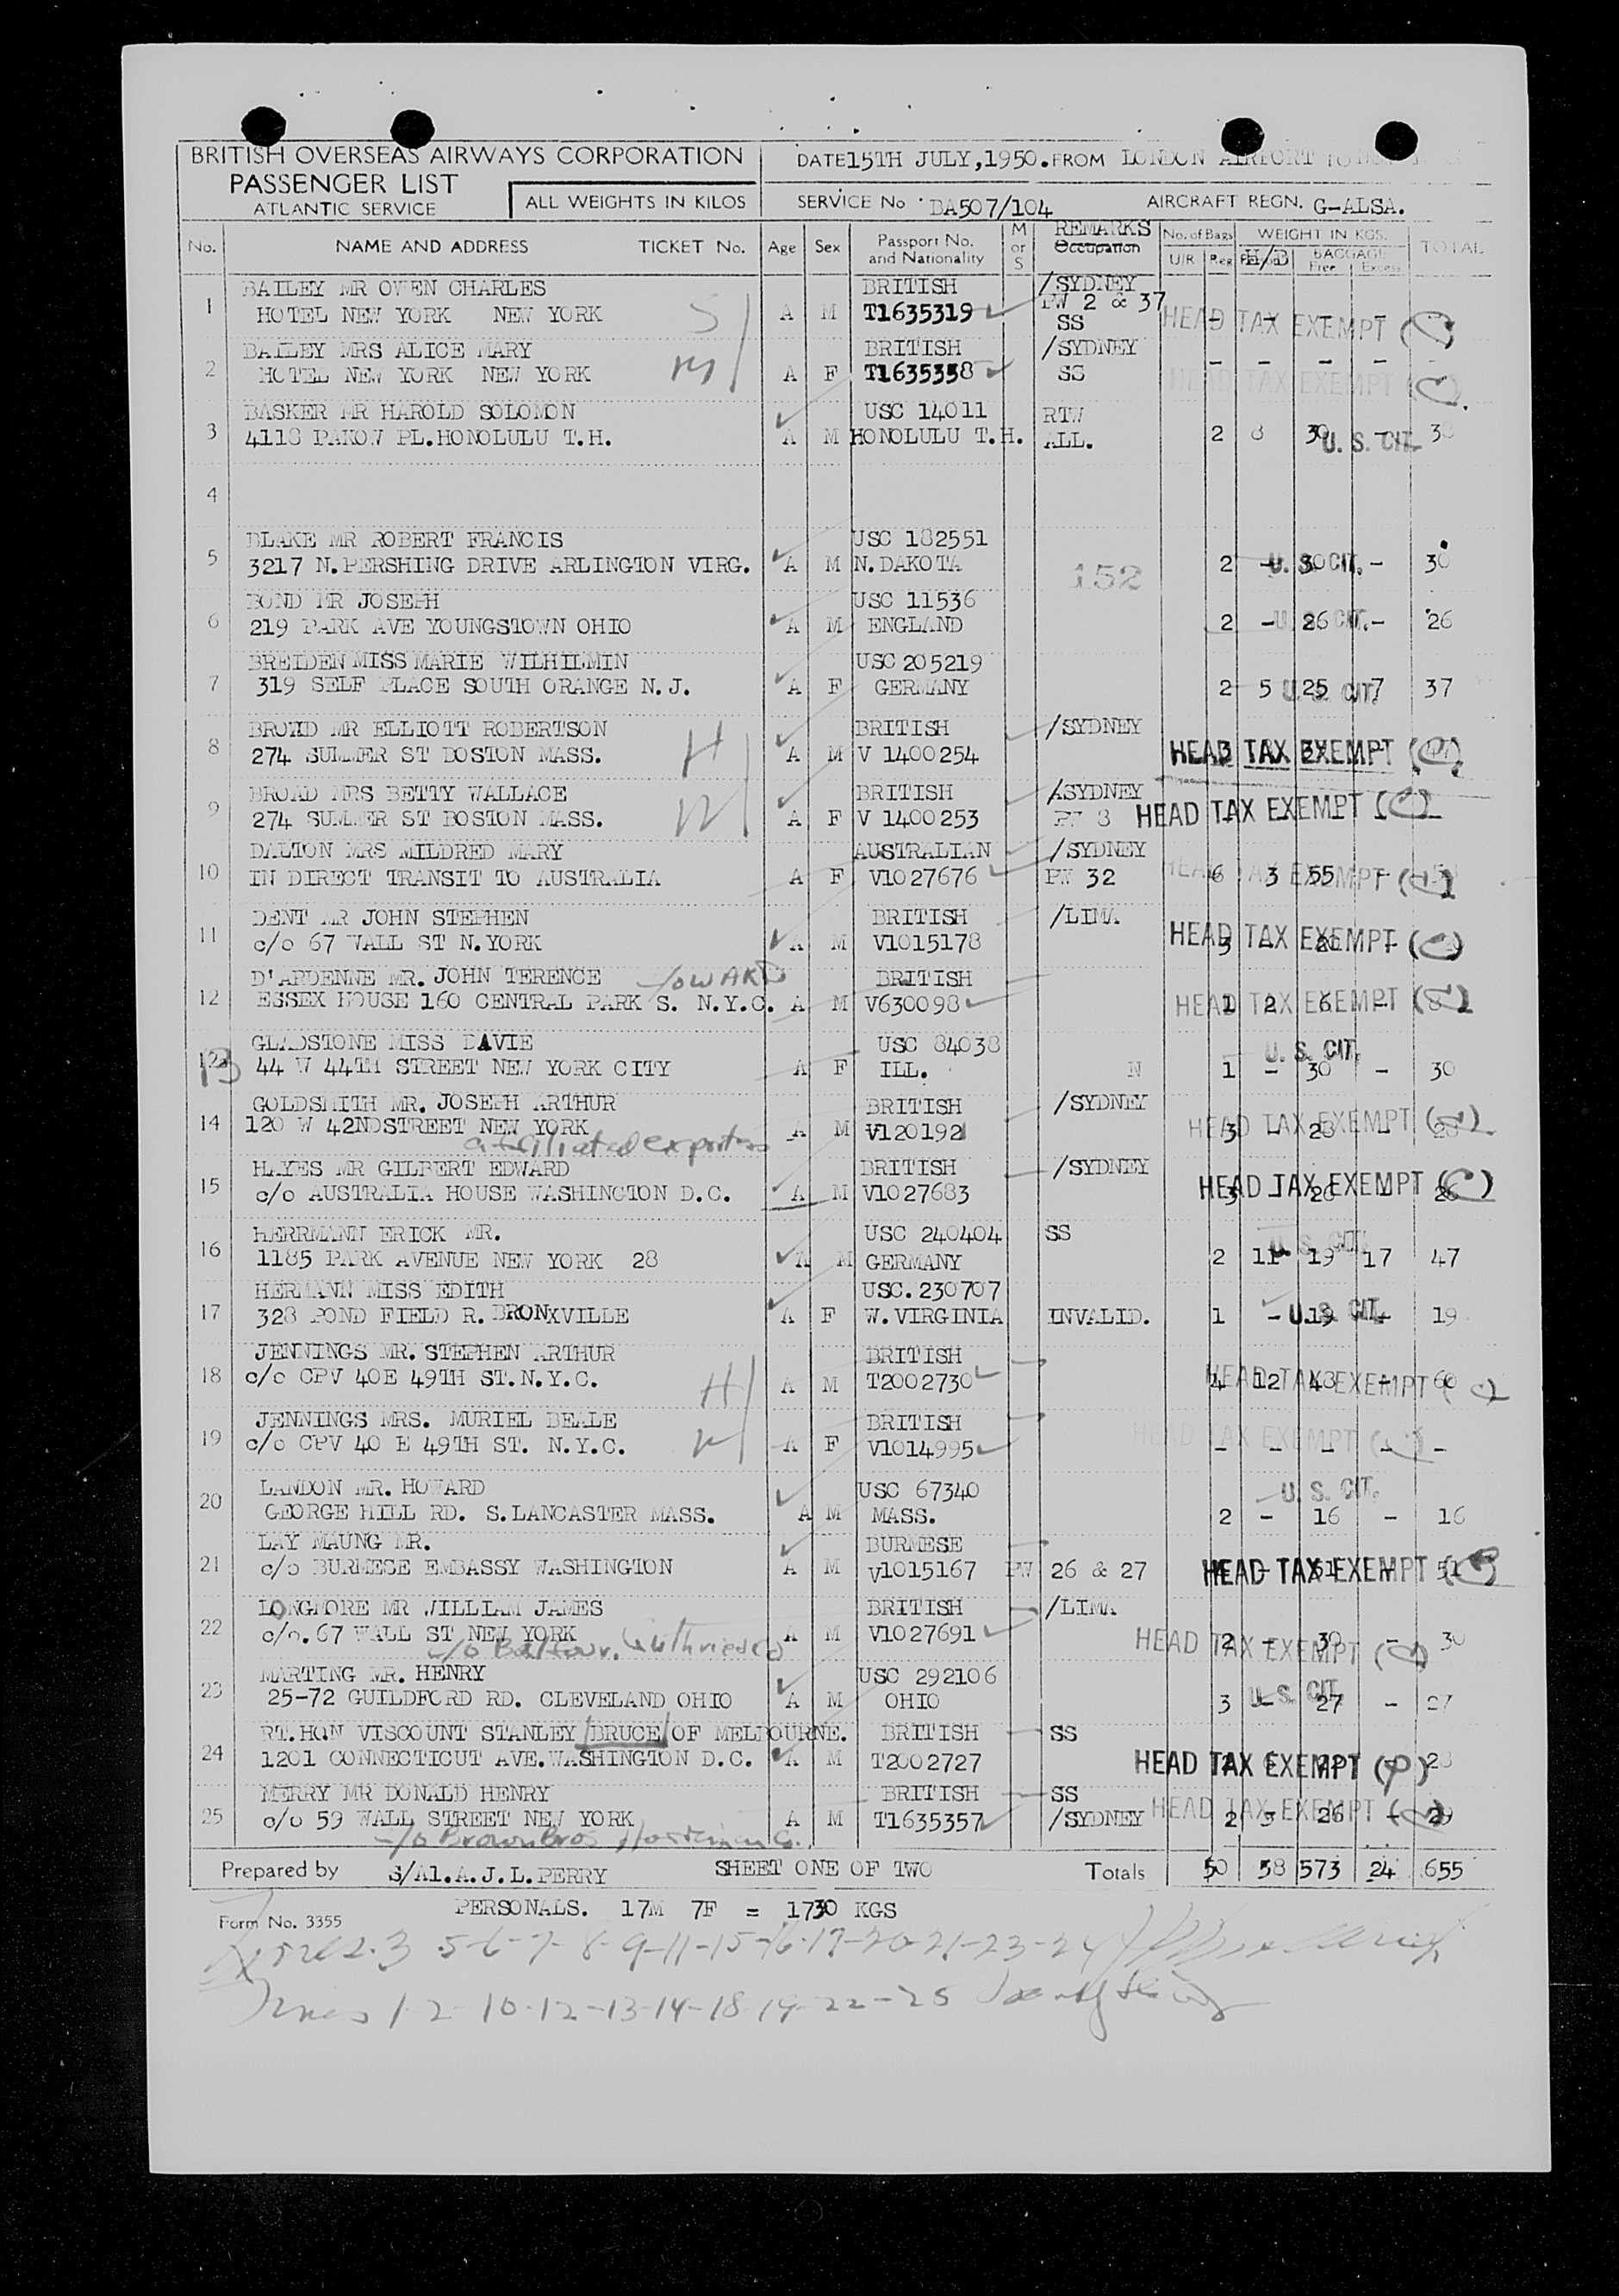 BRITISH OVERSEAS AIRWAYS CORPORATION
PASSENGER LIST
ATLANTIC SERVICE
ALL WEIGHTS IN KILOS
DATE 15TH JULY,1950. FROM LONDON AIRPORT TO
SERVICE No DA507/104 AIRCRAFT REGN. G-ALSA.
No. NAME AND ADDRESS TICKET No. Age Sex Passport No. and Nationality M or S REMARKS Occupation No. of Bags U/R Reg H/B WEIGHT IN KGS. BAGGAGE Free Excess TOTAL
BAILEY MR OWEN CHARLES BRITISH /SYDNEY
1 HOTEL NEW YORK NEW YORK S A M T1635319 PW 2 & 37 SS - - - - HEAD TAX EXEMPT
BAILEY MRS ALICE MARY BRITISH /SYDNEY
2 HOTEL NEW YORK NEW YORK M A F T1635358 SS - - - - HEAD TAX EXEMPT
BASKER MR HAROLD SOLOMON USC 14011 RTW
3 4118 PAKOW PL.HONOLULU T.H. A M HONOLULU T.H. ALL. 2 8 30 - 38 U. S. CIT.
4
BLAKE MR ROBERT FRANCIS USC 182551
5 3217 N.PERSHING DRIVE ARLINGTON VIRG. A M N.DAKOTA 152 2 - 30 - 30 U. S. CIT.
BOND MR JOSEPH USC 11536
6 219 PARK AVE YOUNGSTOWN OHIO A M ENGLAND 2 - 26 - 26 U. S. CIT.
BREIDEN MISS MARIE WILHILMIN USC 205219
7 319 SELF PLACE SOUTH ORANGE N.J. A F GERMANY 2 5 25 7 37 U. S. CIT.
BROAD MR ELLIOTT ROBERTSON BRITISH /SYDNEY
8 274 SUMMER ST BOSTON MASS. H A M V 1400254 HEAD TAX EXEMPT
BROAD MRS BETTY WALLACE BRITISH /SYDNEY
9 274 SUMMER ST BOSTON MASS. W A F V 1400253 PW 8 HEAD TAX EXEMPT
DALTON MRS MILDRED MARY AUSTRALIAN /SYDNEY
10 IN DIRECT TRANSIT TO AUSTRALIA A F V1027676 PW 32 6 3 55 - HEAD TAX EXEMPT
DENT MR JOHN STEPHEN BRITISH /LIMA
11 c/o 67 WALL ST N.YORK A M V1015178 3 - HEAD TAX EXEMPT
D'ARDENNE MR. JOHN TERENCE BRITISH
12 ESSEX HOUSE 160 CENTRAL PARK S. N.Y.C. A M V630098 1 2 6 - 8 HEAD TAX EXEMPT
GLADSTONE MISS DAVIE USC 84038
13 44 W 44TH STREET NEW YORK CITY A F ILL. N 1 - 30 - 30 U. S. CIT.
GOLDSMITH MR. JOSEPH ARTHUR BRITISH /SYDNEY
14 120 W 42NDSTREET NEW YORK A M V120192 3 - 28 - 28 HEAD TAX EXEMPT
affiliated exporters
HAYES MR GILBERT EDWARD BRITISH /SYDNEY
15 c/o AUSTRALIA HOUSE WASHINGTON D.C. A M V1027683 3 - 26 - 26 HEAD TAX EXEMPT
HERRMANN ERICK MR. USC 240404 SS
16 1185 PARK AVENUE NEW YORK 28 A M GERMANY 2 11 19 17 47 U. S. CIT.
HERMANN MISS EDITH USC.230707
17 328 POND FIELD R. BRONXVILLE A F W.VIRGINIA INVALID. 1 - 19 - 19 U. S. CIT.
JENNINGS MR. STEPHEN ARTHUR BRITISH
18 c/o CPV 40E 49TH ST.N.Y.C. H A M T2002730 4 12 48 - 60 HEAD TAX EXEMPT
JENNINGS MRS. MURIEL BEALE BRITISH
19 c/o CPV 40 E 49TH ST. N.Y.C. W A F V1014995 - - - - - HEAD TAX EXEMPT
LANDON MR. HOWARD USC 67340
20 GEORGE HILL RD. S.LANCASTER MASS. A M MASS. 2 - 16 - 16 U. S. CIT.
LAY MAUNG MR. BURMESE
21 c/o BURMESE EMBASSY WASHINGTON A M V1015167 PW 26 & 27 - 51 - 51 HEAD TAX EXEMPT
LONGMORE MR WILLIAM JAMES BRITISH /LIMA
22 c/o.67 WALL ST NEW YORK A M V1027691 2 - 30 - 30 HEAD TAX EXEMPT
c/o Balfour, Guthrie & Co
MARTING MR. HENRY USC 292106
23 25-72 GUILDFORD RD. CLEVELAND OHIO A M OHIO 3 - 27 - 27 U. S. CIT.
RT.HON VISCOUNT STANLEY BRUCE OF MELBOURNE. BRITISH SS
24 1201 CONNECTICUT AVE.WASHINGTON D.C. A M T2002727 28 HEAD TAX EXEMPT
MERRY MR DONALD HENRY BRITISH SS
25 c/o 59 WALL STREET NEW YORK A M T1635357 /SYDNEY 2 3 26 - 29 HEAD TAX EXEMPT
c/o Brown Bros Harriman Co.
Prepared by S/A1.A.J.L.PERRY SHEET ONE OF TWO Totals 50 58 573 24 655
PERSONALS. 17M 7F = 1730 KGS
Form No. 3355
Lines 3 5-6-7-8-9-11-15-16-17-20-21-23-24
Lines 1-2-10-12-13-14-18-19-22-25